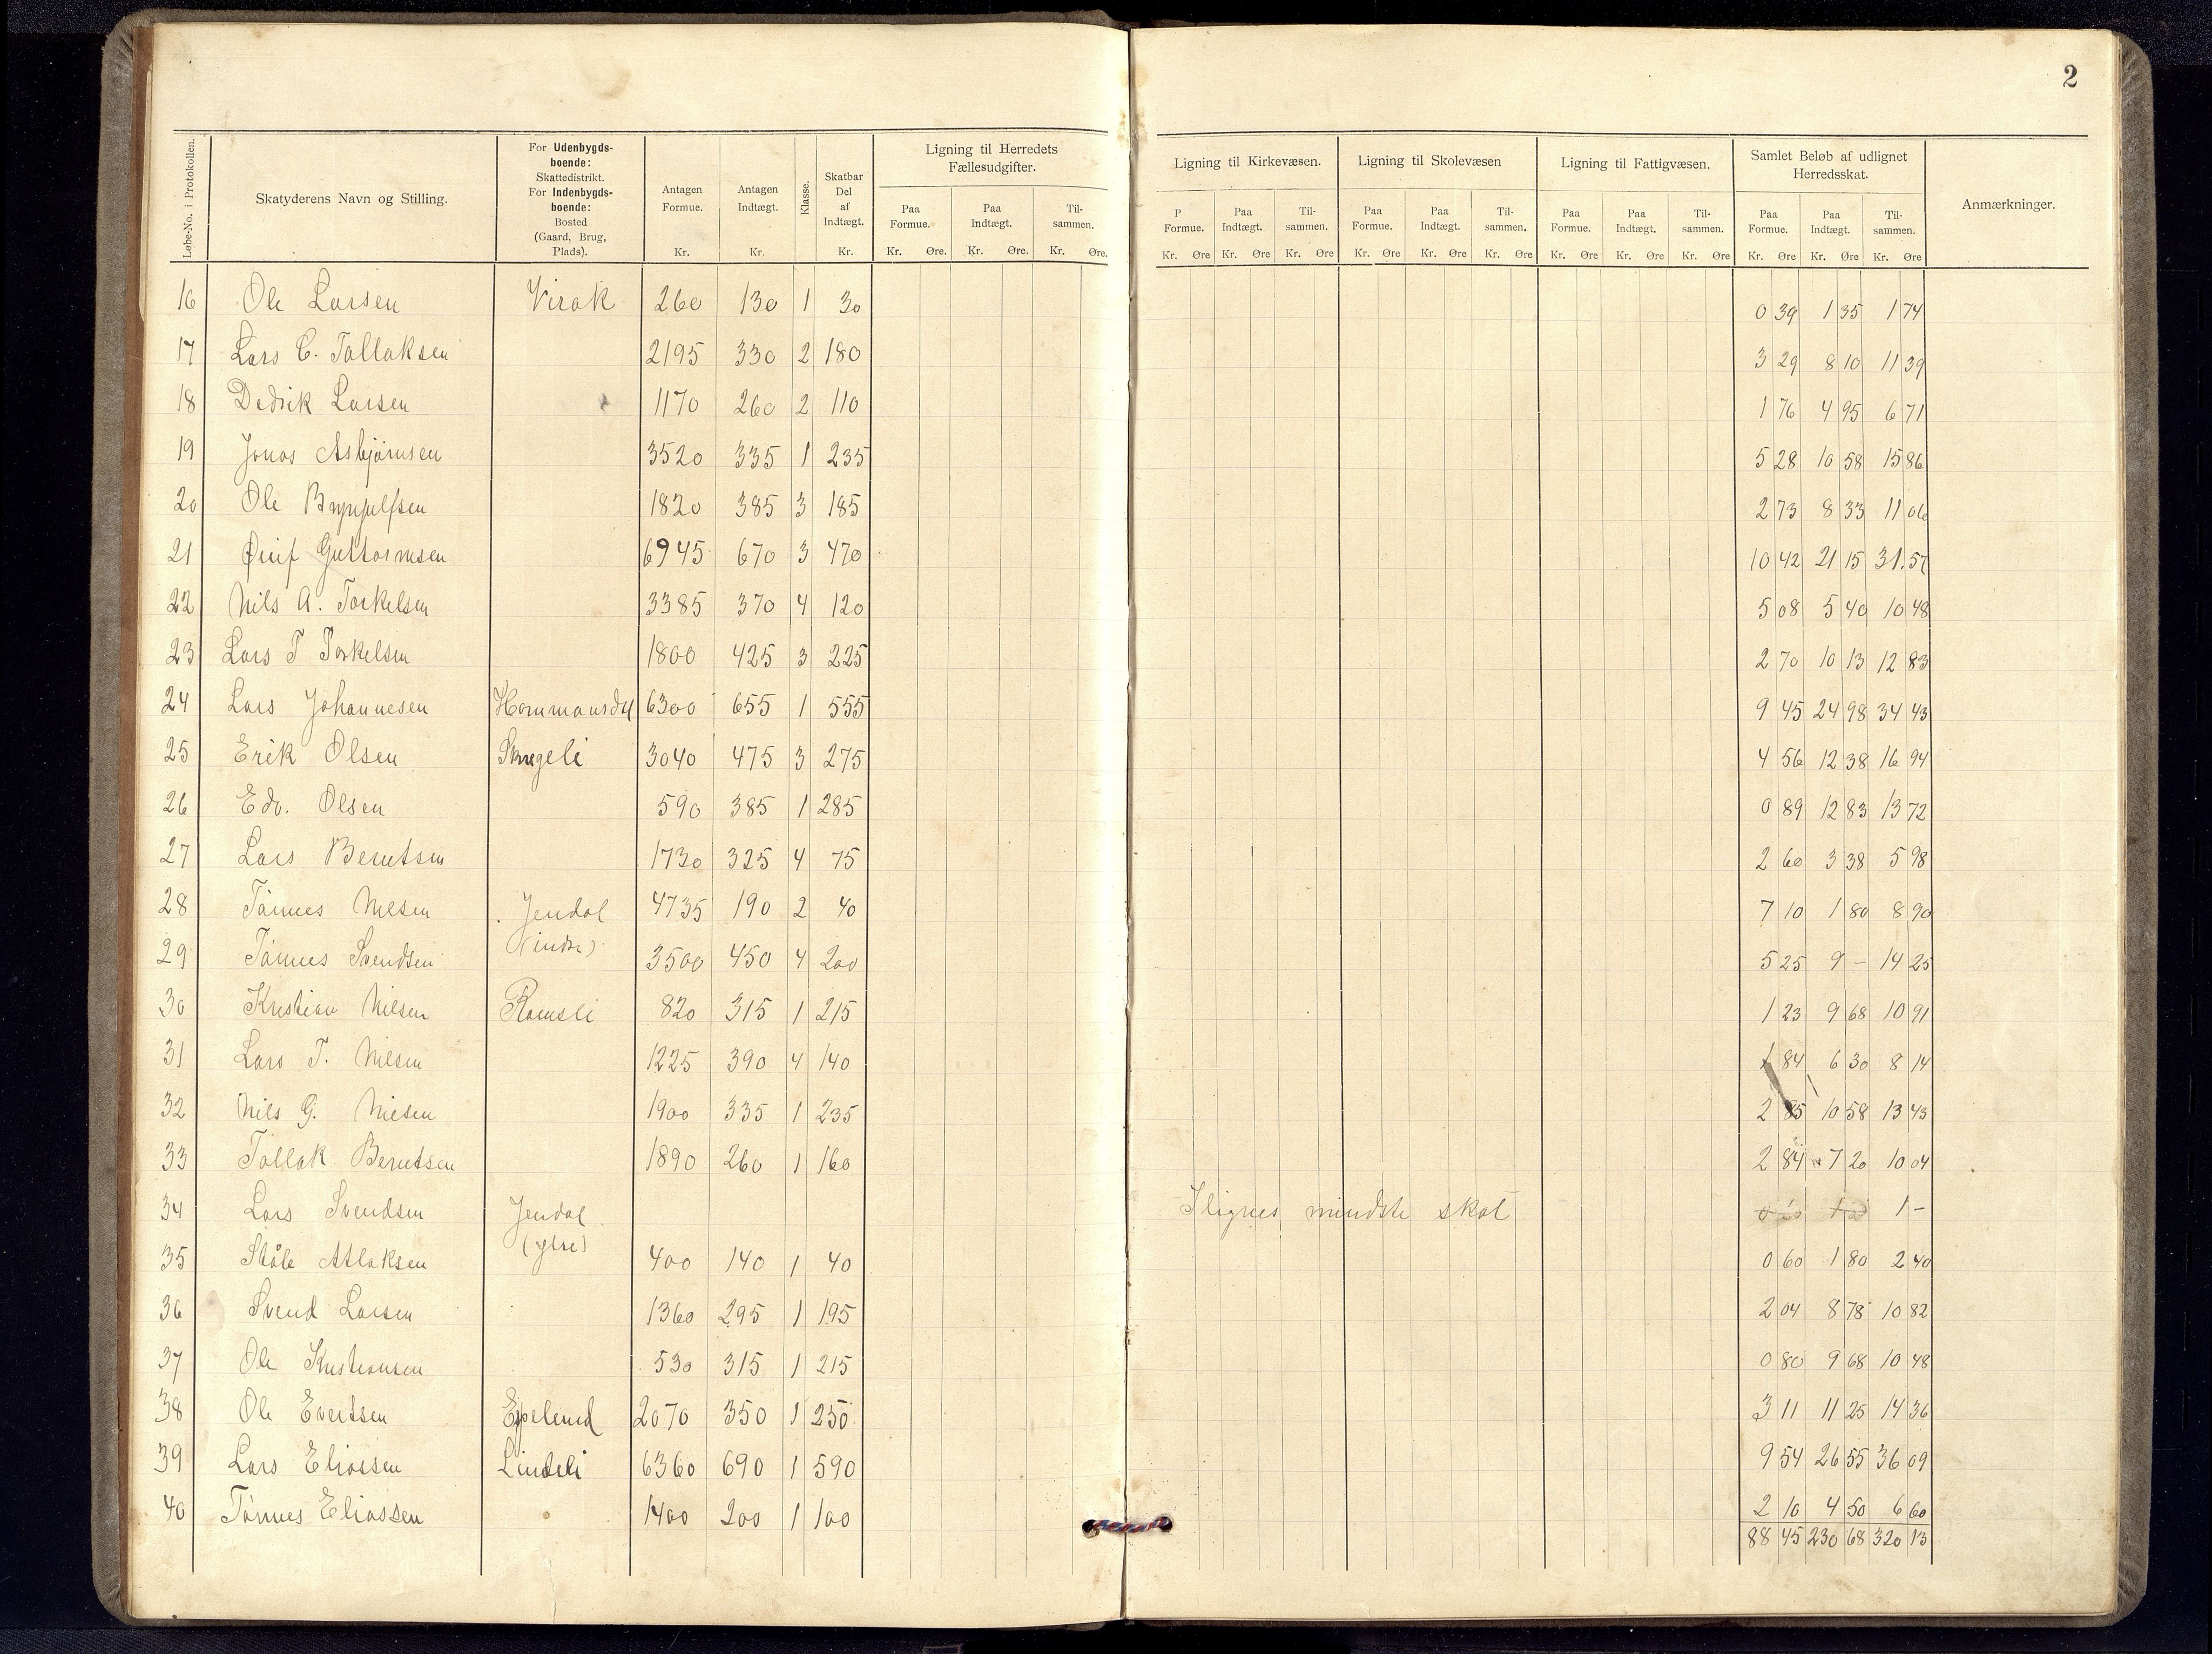 2
Løbe-No. i Protokollen.
Skatyderens Navn og Stilling.
For Udenbygds-
boende:
Skattedistrikt.
For Indenbygds-
boende:
Bosted
(Gaard, Brug,
Plads).
Antagen
Formue.
Kr.
Antagen
Indtægt.
Kr.
Klasse.
Skatbar
Del
af
Indtægt.
Kr.
Ligning til Herredets
Fællesudgifter.
Paa
Formue.
Kr. Øre.
Paa
Indtægt.
Kr. Øre.
Til-
sammen.
Kr. Øre.
Ligning til Kirkevæsen.
P
Formue.
Kr. Øre
Paa
Indtægt.
Kr. Øre
Til-
sammen.
Kr. Øre
Ligning til Skolevæsen
Paa
Formue.
Kr. Øre
Paa
Indtægt.
Kr. Øre
Til-
sammen.
Kr. Øre
Ligning til Fattigvæsen.
Paa
Formue.
Kr. Øre
Paa
Indtægt.
Kr. Øre
Til-
sammen.
Kr. Øre
Samlet Beløb af udlignet
Herredsskat.
Paa
Formue.
Kr. Øre
Paa
Indtægt.
Kr. Øre
Til-
sammen.
Kr. Øre
Anmærkninger.
16 Ole Larsen Virak 260 130 1 30 0 39 1 35 1 74
17 Lars C. Tallaksen 2195 330 2 180 3 29 8 10 11 39
18 Dedrik Larsen 1170 260 2 110 1 76 4 95 6 71
19 Jonas Asbjørnsen 3520 335 1 235 5 28 10 58 15 86
20 Ole 1820 385 3 185 2 73 8 33 11 06
21 Guttormsen 6945 670 3 470 10 42 21 15 31.57
22 Nils A. Torkelsen 3385 370 4 120 5 08 5 40 10 48
23 Lars T Torkelsen 1800 425 3 225 2 70 10 13 12 83
24 Lars Johannesen 6300 655 1 555 9 45 24 98 34 43
25 Erik Olsen 3040 475 3 275 4 56 12 38 16 94
26 Edv. Olsen 590 385 1 285 0 89 12 83 13 72
27 Lars Berntsen 1730 325 4 75 2 60 3 38 5 98
28 Tönnes Nilsen Jendal 4735 190 2 40 7 10 1 80 8 90
(indre)
29 Tönnes Svendsen 3500 450 4 200 5 25 9 – 14 25
30 Kristian Nilsen Ramsli 820 315 1 215 1 23 9 68 10 91
31 Lars T. Nilsen 1225 390 4 140 1 84 6 30 8 14
32 Nils G. Nilsen 1900 335 1 235 2 85 10 58 13 43
33 Tallak Berntsen 1890 260 1 160 2 84 7 20 10 04
34 Lars Svendsen Jendal Ilignes mindste skat 1 –
(ytre)
35 Ståle Atlaksen 400 140 1 40 0 60 1 80 2 40
36 Svend Larsen 1360 295 1 195 2 04 8 78 10 82
37 Ole Kristiansen 530 315 1 215 0 80 9 68 10 48
38 Ole Evertsen Epelend 2070 350 1 250 3 11 11 25 14 36
39 Lars Eliassen Lindeli 6360 690 1 590 9 54 26 55 36 09
40 Tönnes Eliassen 1400 200 1 100 2 10 4 50 6 60
88 45 230 68 320 13